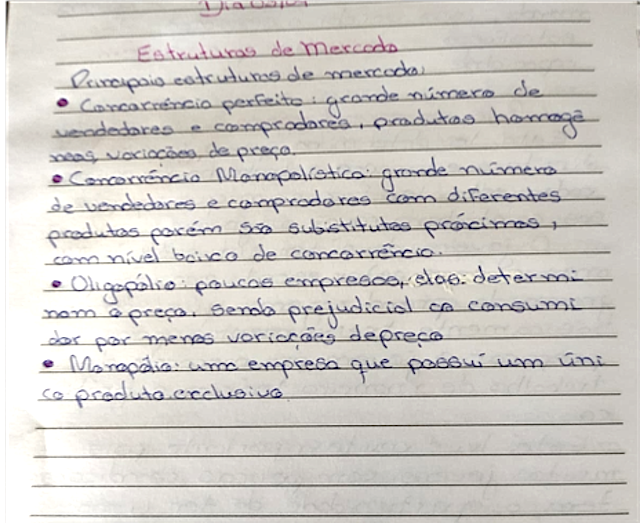 Estruturas de Mercado
Principais estruturas de mercado:
• Concorrência perfeita: grande número de
vendedores e compradores, produtos homogê
neas, variações de preço.
• Concorrência Monopolística: grande número
de vendedores e compradores com diferentes
produtos porém são substitutos próximos,
com nível baixo de concorrência.
• Oligopólio: poucas empresas, elas determi
nam o preço, sendo prejudicial ao consumi
dor por menos variações de preço
• Monopólio: uma empresa que possuí um úni
co produto exclusivo.